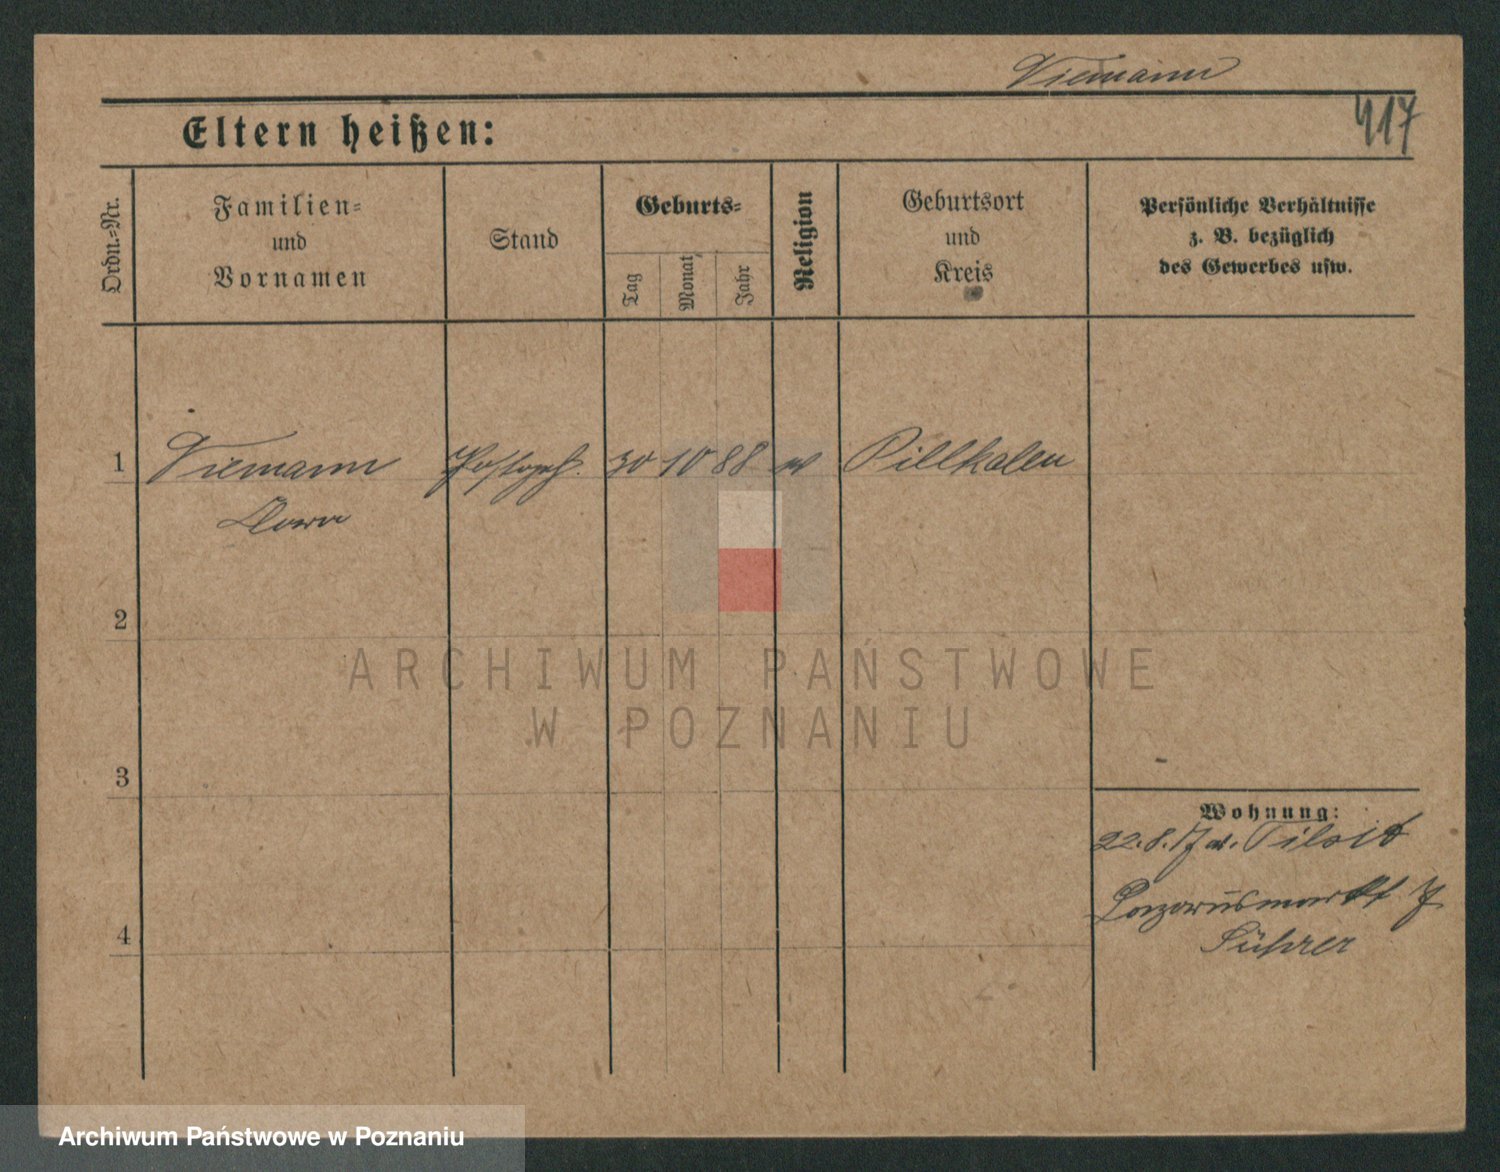 Viemann
417
Eltern heißen:
Ordn.-Nr.
Familien-
und
Vornamen
Stand
Geburts-
Tag
Monat
Jahr
Religion
Geburtsort
und
Kreis
Persönliche Verhältnisse
z. B. bezüglich
des Gewerbes usw.
1 Viemann Postgeh. 30 10 88 Pillkalen
2
ARCHIWUM PAŃSTWOWE
W POZNANIU
3
Wohnung:
22.8.17 Tilsit
Lazarusmarkt 7
4
Führer
Archiwum Państwowe w Poznaniu